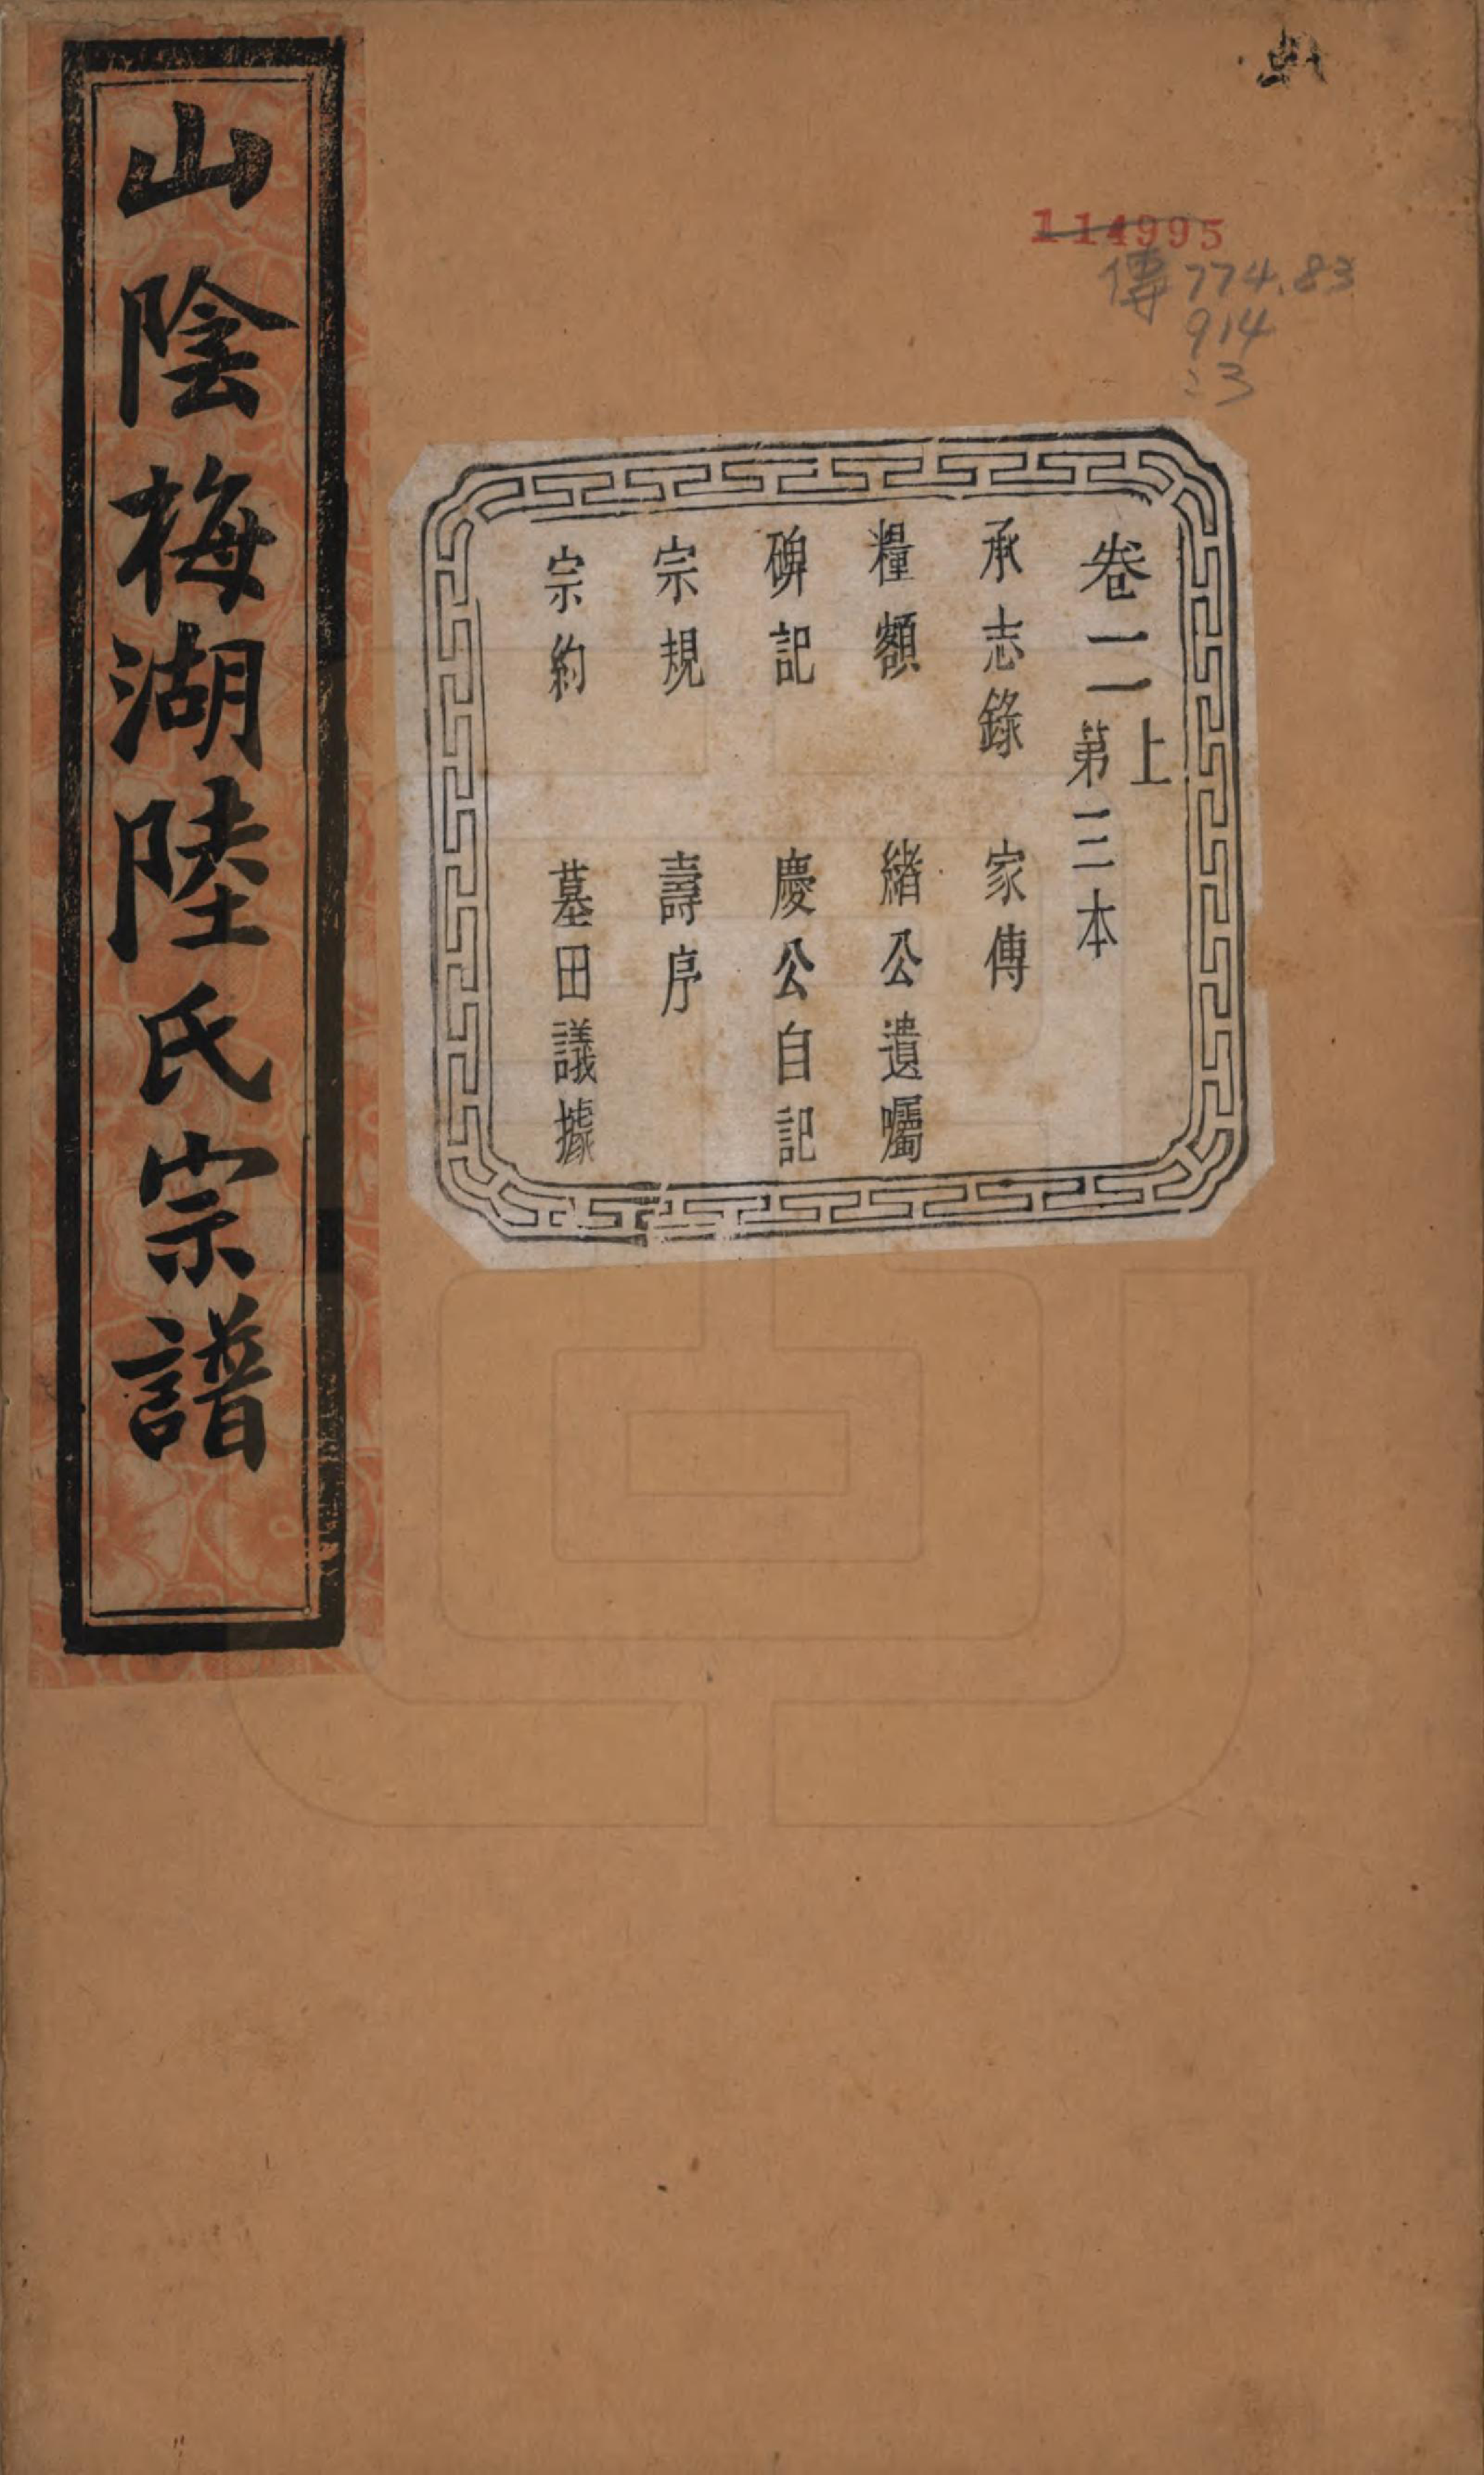 山陰梅湖陸氏宗譜
114995
傳774.83
914
:3
卷二上
第三本
承志錄 家傳
糧額 緒公遺囑
碑記 慶公自記
宗規 壽序
宗約 墓田議據